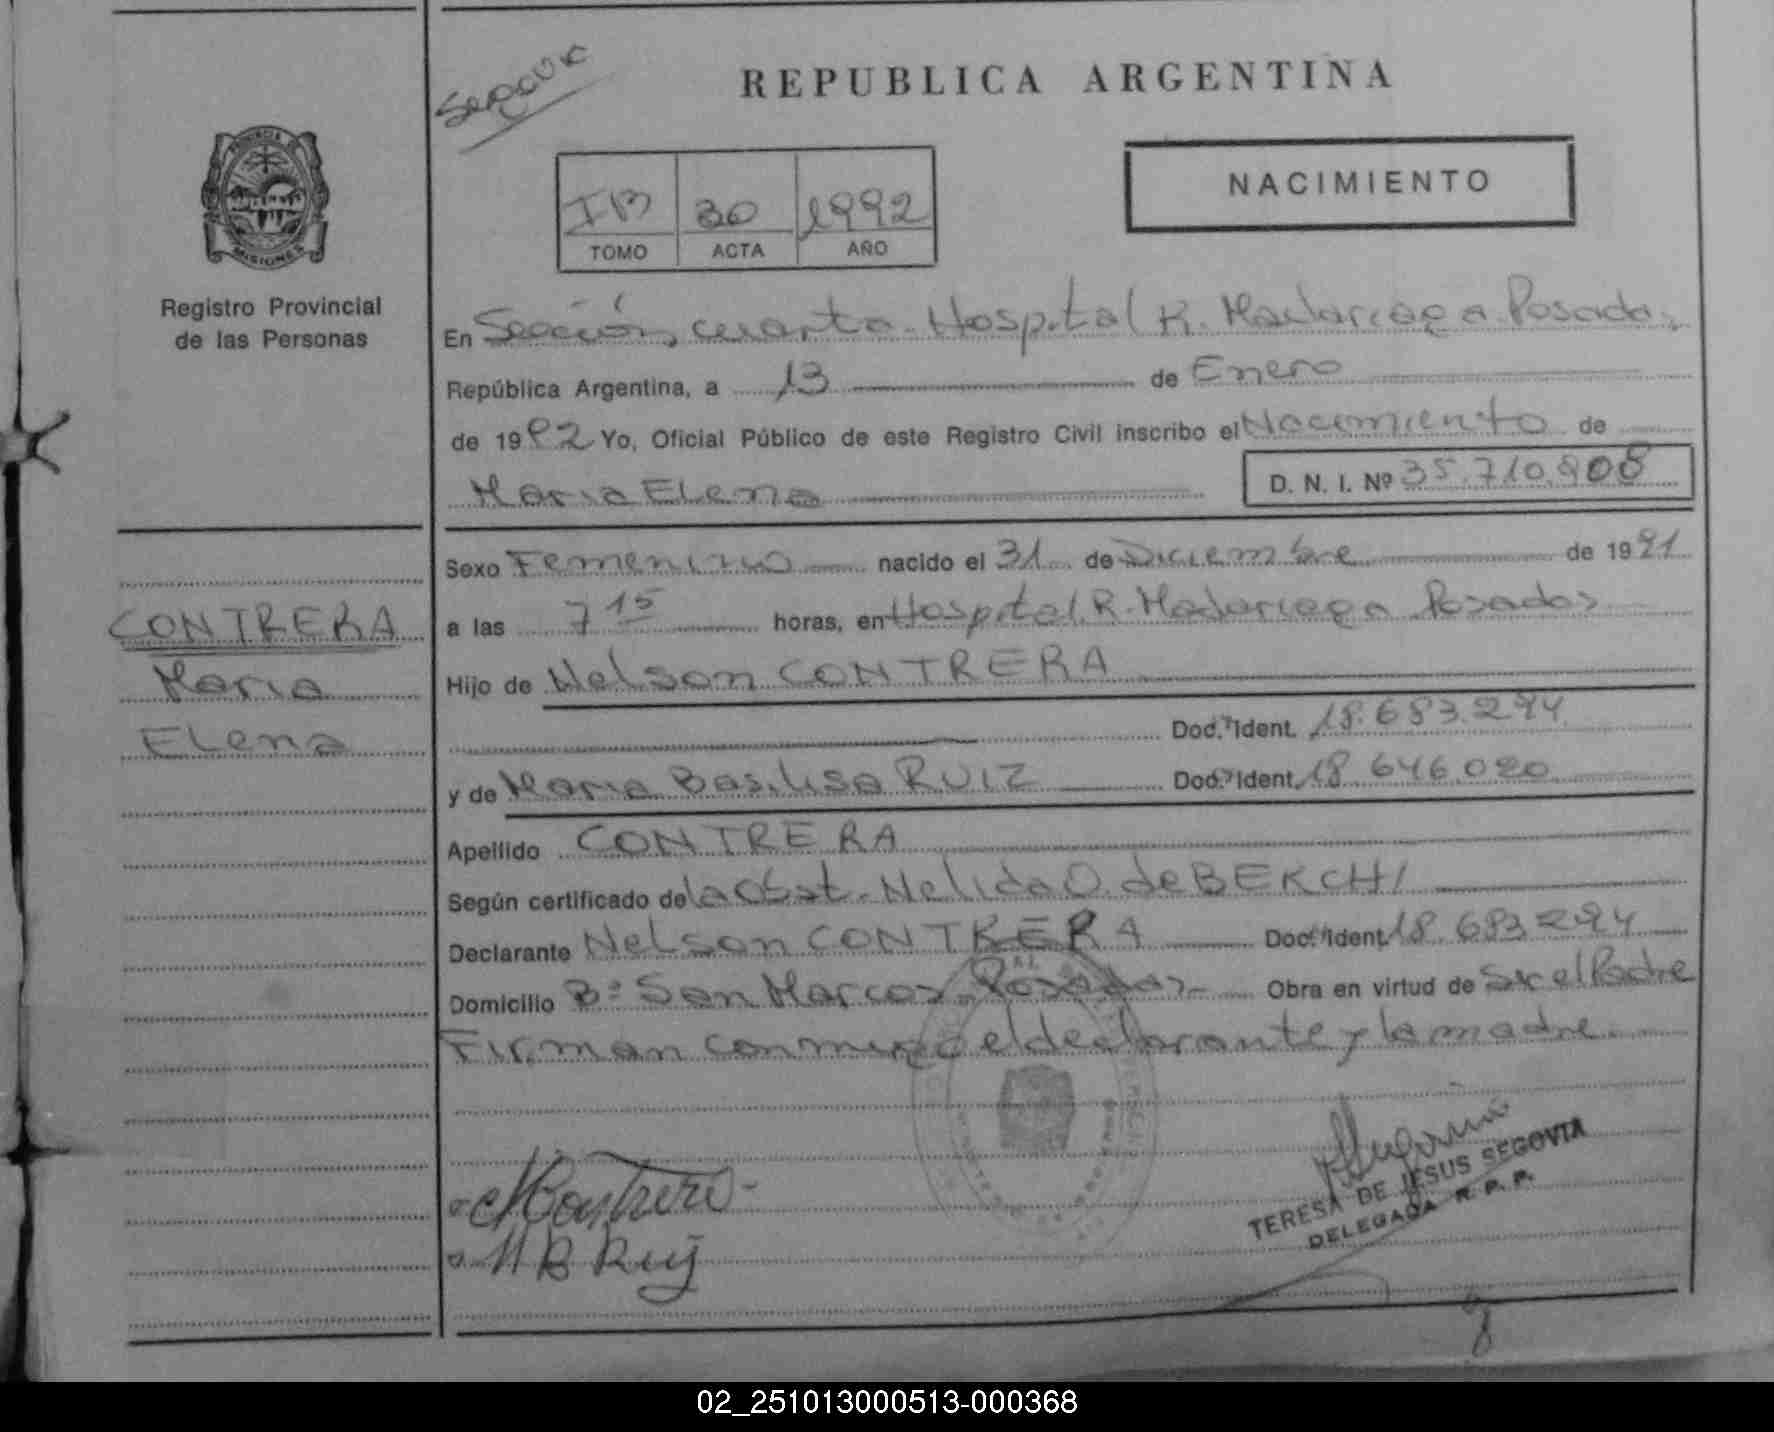 REPUBLICA ARGENTINA
PROVINCIA
MISIONES
Registro Provincial
de las Personas
NACIMIENTO
30 1992
TOMO ACTA AÑO
En Sección cuarta - Hospital R. Madariaga Posadas,
República Argentina, a 13 de Enero
de 1992 Yo, Oficial Público de este Registro Civil inscribo el Nacimiento de
Maria Elena D. N. I. Nº 35.710.908
Sexo Femenino nacido el 31 de Diciembre de 1991
a las 7 15 horas, en Hospital R. Madariaga Posadas
Hijo de Nelson CONTRERA
Doc. Ident. 18.683.294
y de Maria Basilisa RUIZ Doc. Ident. 18.646.020
Apellido CONTRERA
Según certificado de la Obst. Nelida O. de BERCHI
Declarante Nelson CONTRERA Doc. Ident. 18.683.294
Domicilio Bº San Marcos Posadas Obra en virtud de Ser el Padre
Firman conmigo el declarante y la madre.
CONTRERA
Maria
Elena
N Contrera
M B Ruiz
TERESA DE JESUS SEGOVIA
DELEGADA R. P. P.
02_251013000513-000368